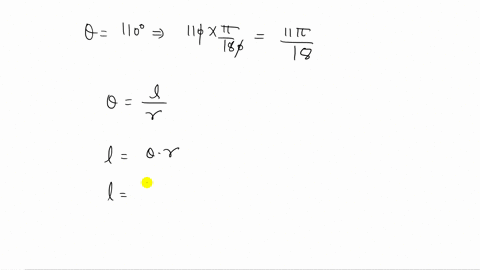 θ = 110° ⇒ 110 × π/180 = 11π/18
θ = l/r
l = θ·r
l =